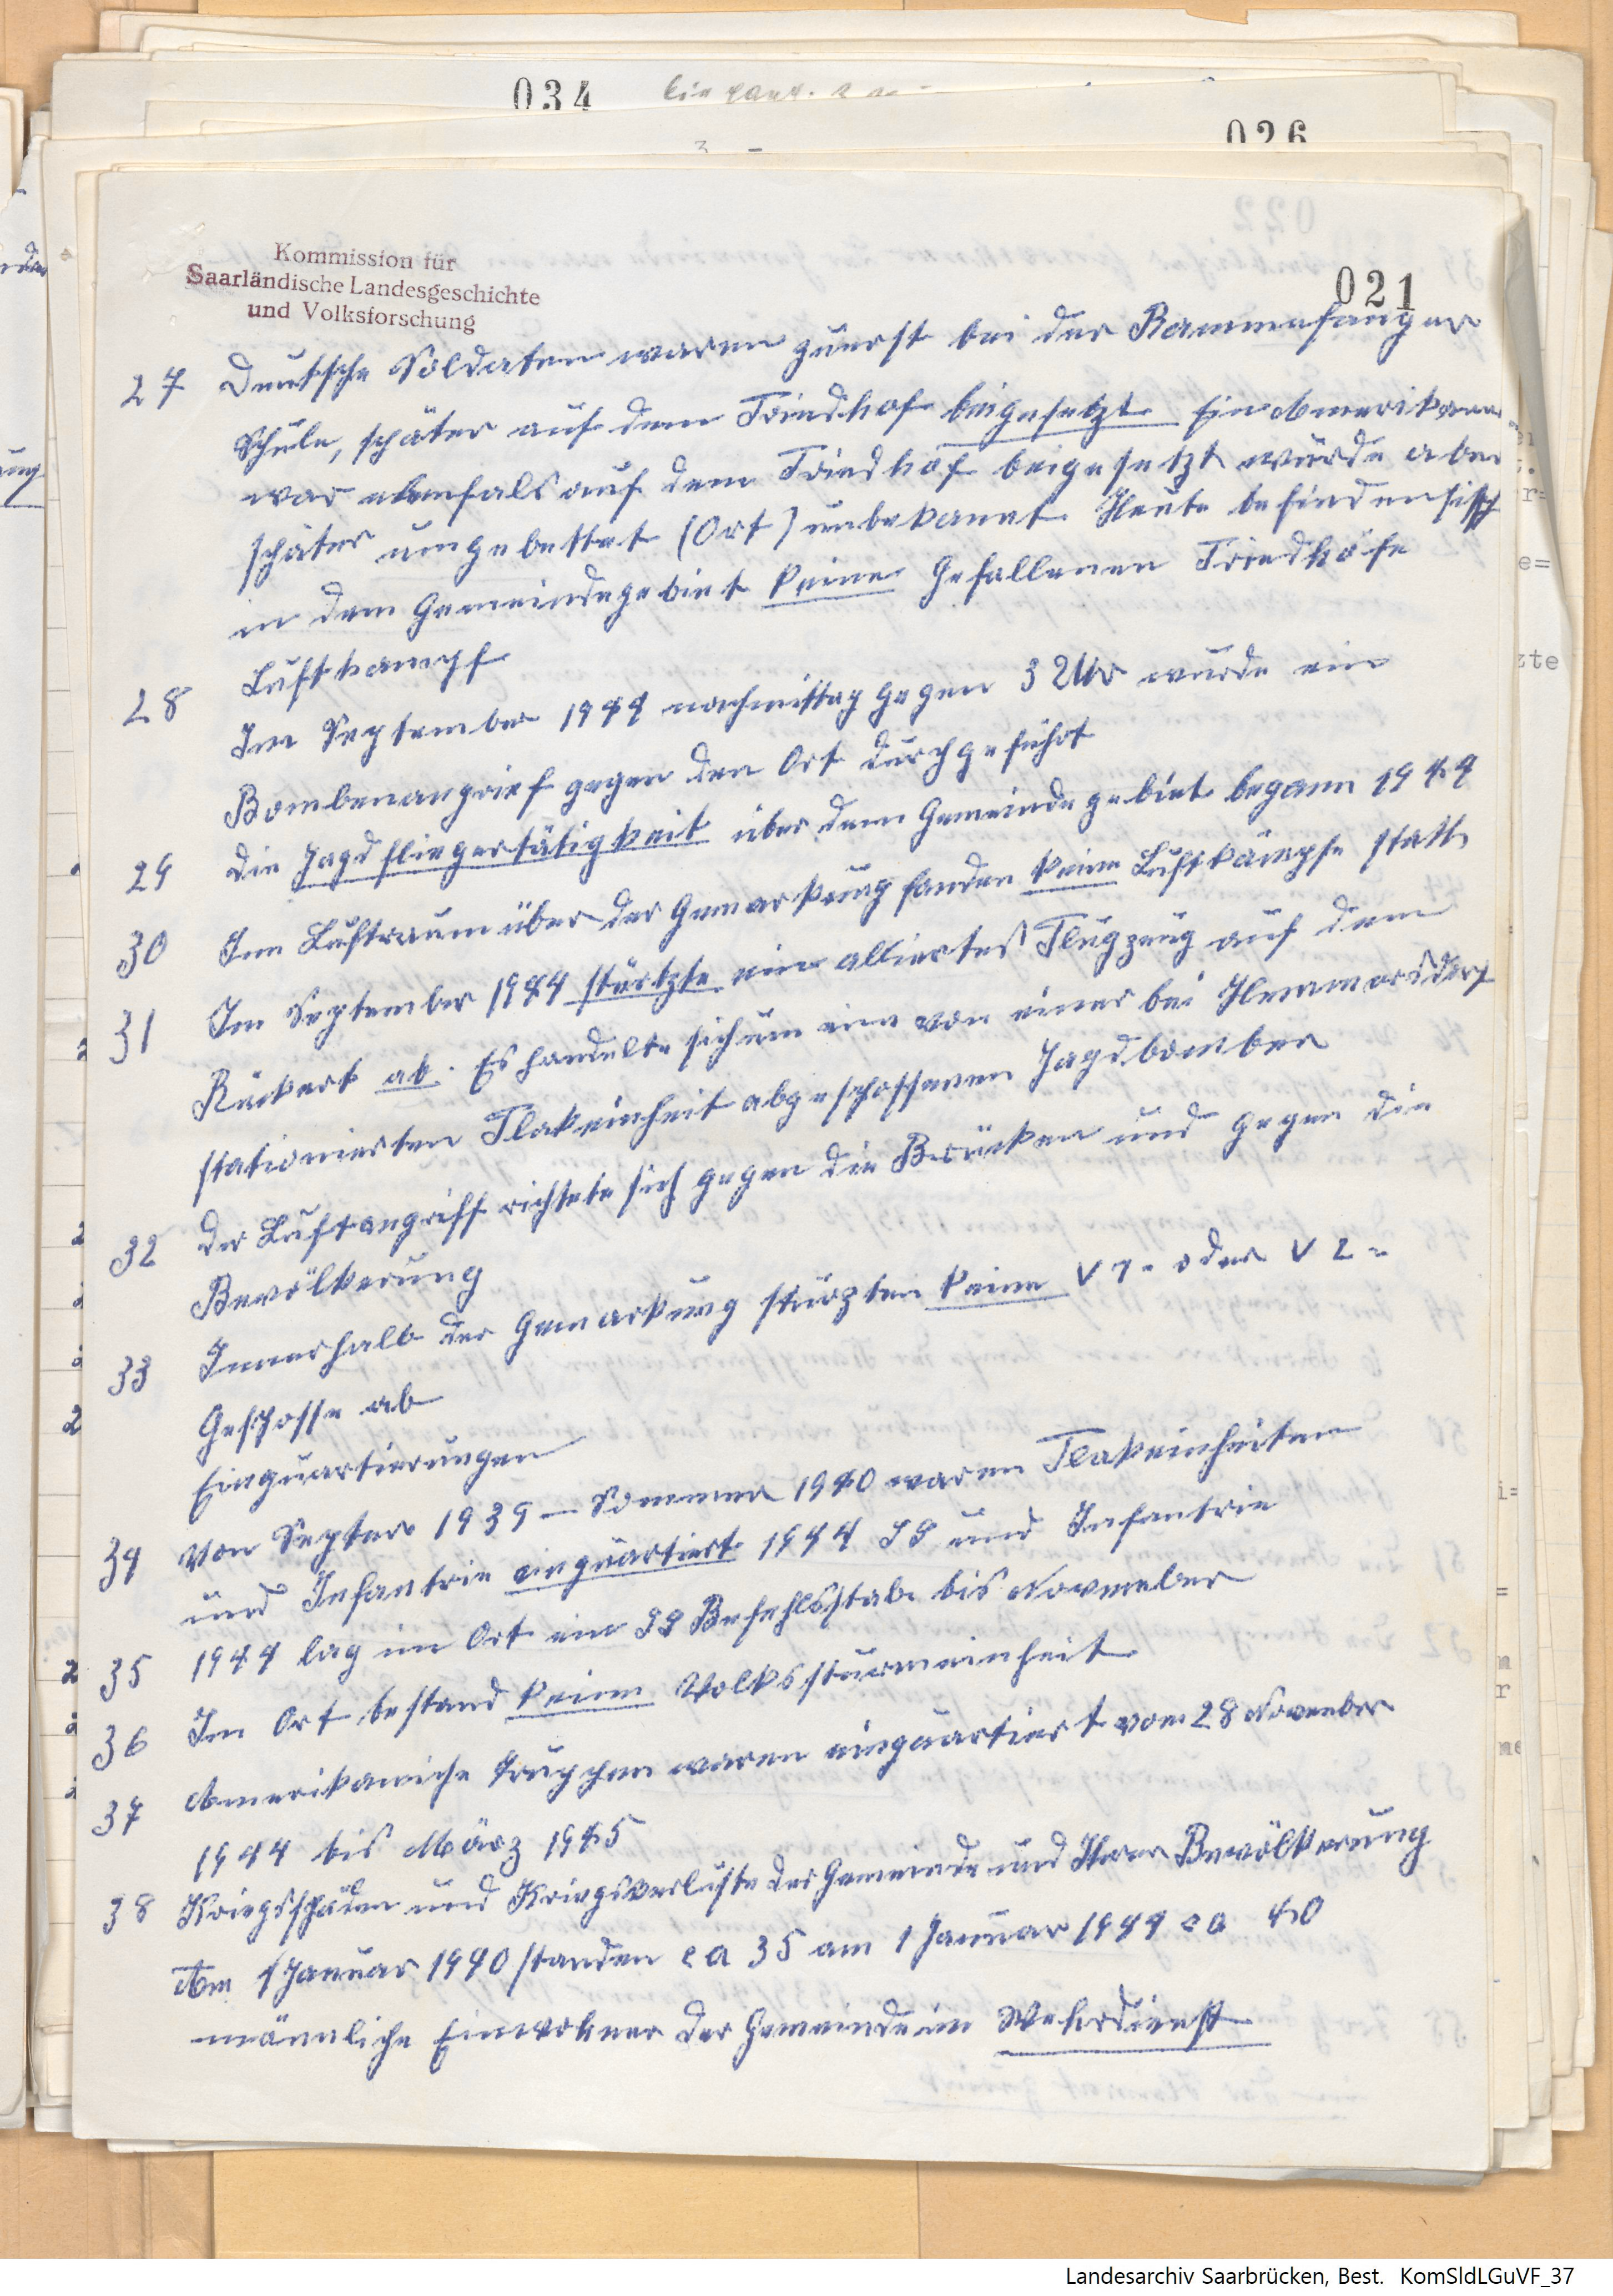 034
026
021
Kommission für
Saarländische Landesgeschichte
und Volksforschung
27 Deutsche Soldaten waren zuerst bei der Rammenfanger
Schule, später auf dem Friedhof beigesetzt Ein Amerikaner
war ebenfals auf dem Friedhof beigesetzt wurde aber
später umgebettet (Ort) unbekannt. Heute befinden sich
in dem Gemeindegebiet keine Gefallenen Friedhöfe
Luftkampf
28 Im September 1944 nachmittag gegen 3 Uhr wurde ein
Bombenangrief gegen den Ort durchgeführt
29 die Jagdfliegertätigkeit über dem Gemeindegebiet begann 1944
30 Im Luftraum über der Gemarkung fanden keine Luftkämpfe statt
31 Im September 1944 stürtzte ein alliertes Flugzeug auf dem
Rückert ab. Es handelte sich um ein von einer bei Hemmersdorf
stationierten Flakeinheit abgeschossenen Jagdbomber
32 der Luftangriff richtete sich gegen die Brücken und gegen die
Bevölkerung
33 Innerhalb der Gemarkung stürzten keine V1- oder V2-
Geschosse ab
Einquartierungen
34 Von Septer 1939 – Sommer 1940 waren Flakeinheiten
und Infantrie einquartiert 1944 SS und Infantrie
35 1944 lag im Ort ein SS Befehlsstab bis November
36 Im Ort bestand keine Volkssturmeinheit
37 Amerikaniche Truppen waren einquartiert vom 28 November
1944 bis März 1945
38 Kriegsschäden und Kriegsverluste der Gemeinde und Ihrer Bevölkerung
Am 1 Januar 1940 standen ca 35 am 1 Januar 1944 ca 40
männliche Einwohner der Gemeinde im Wehrdienst
Landesarchiv Saarbrücken, Best. KomSldLGuVF_37